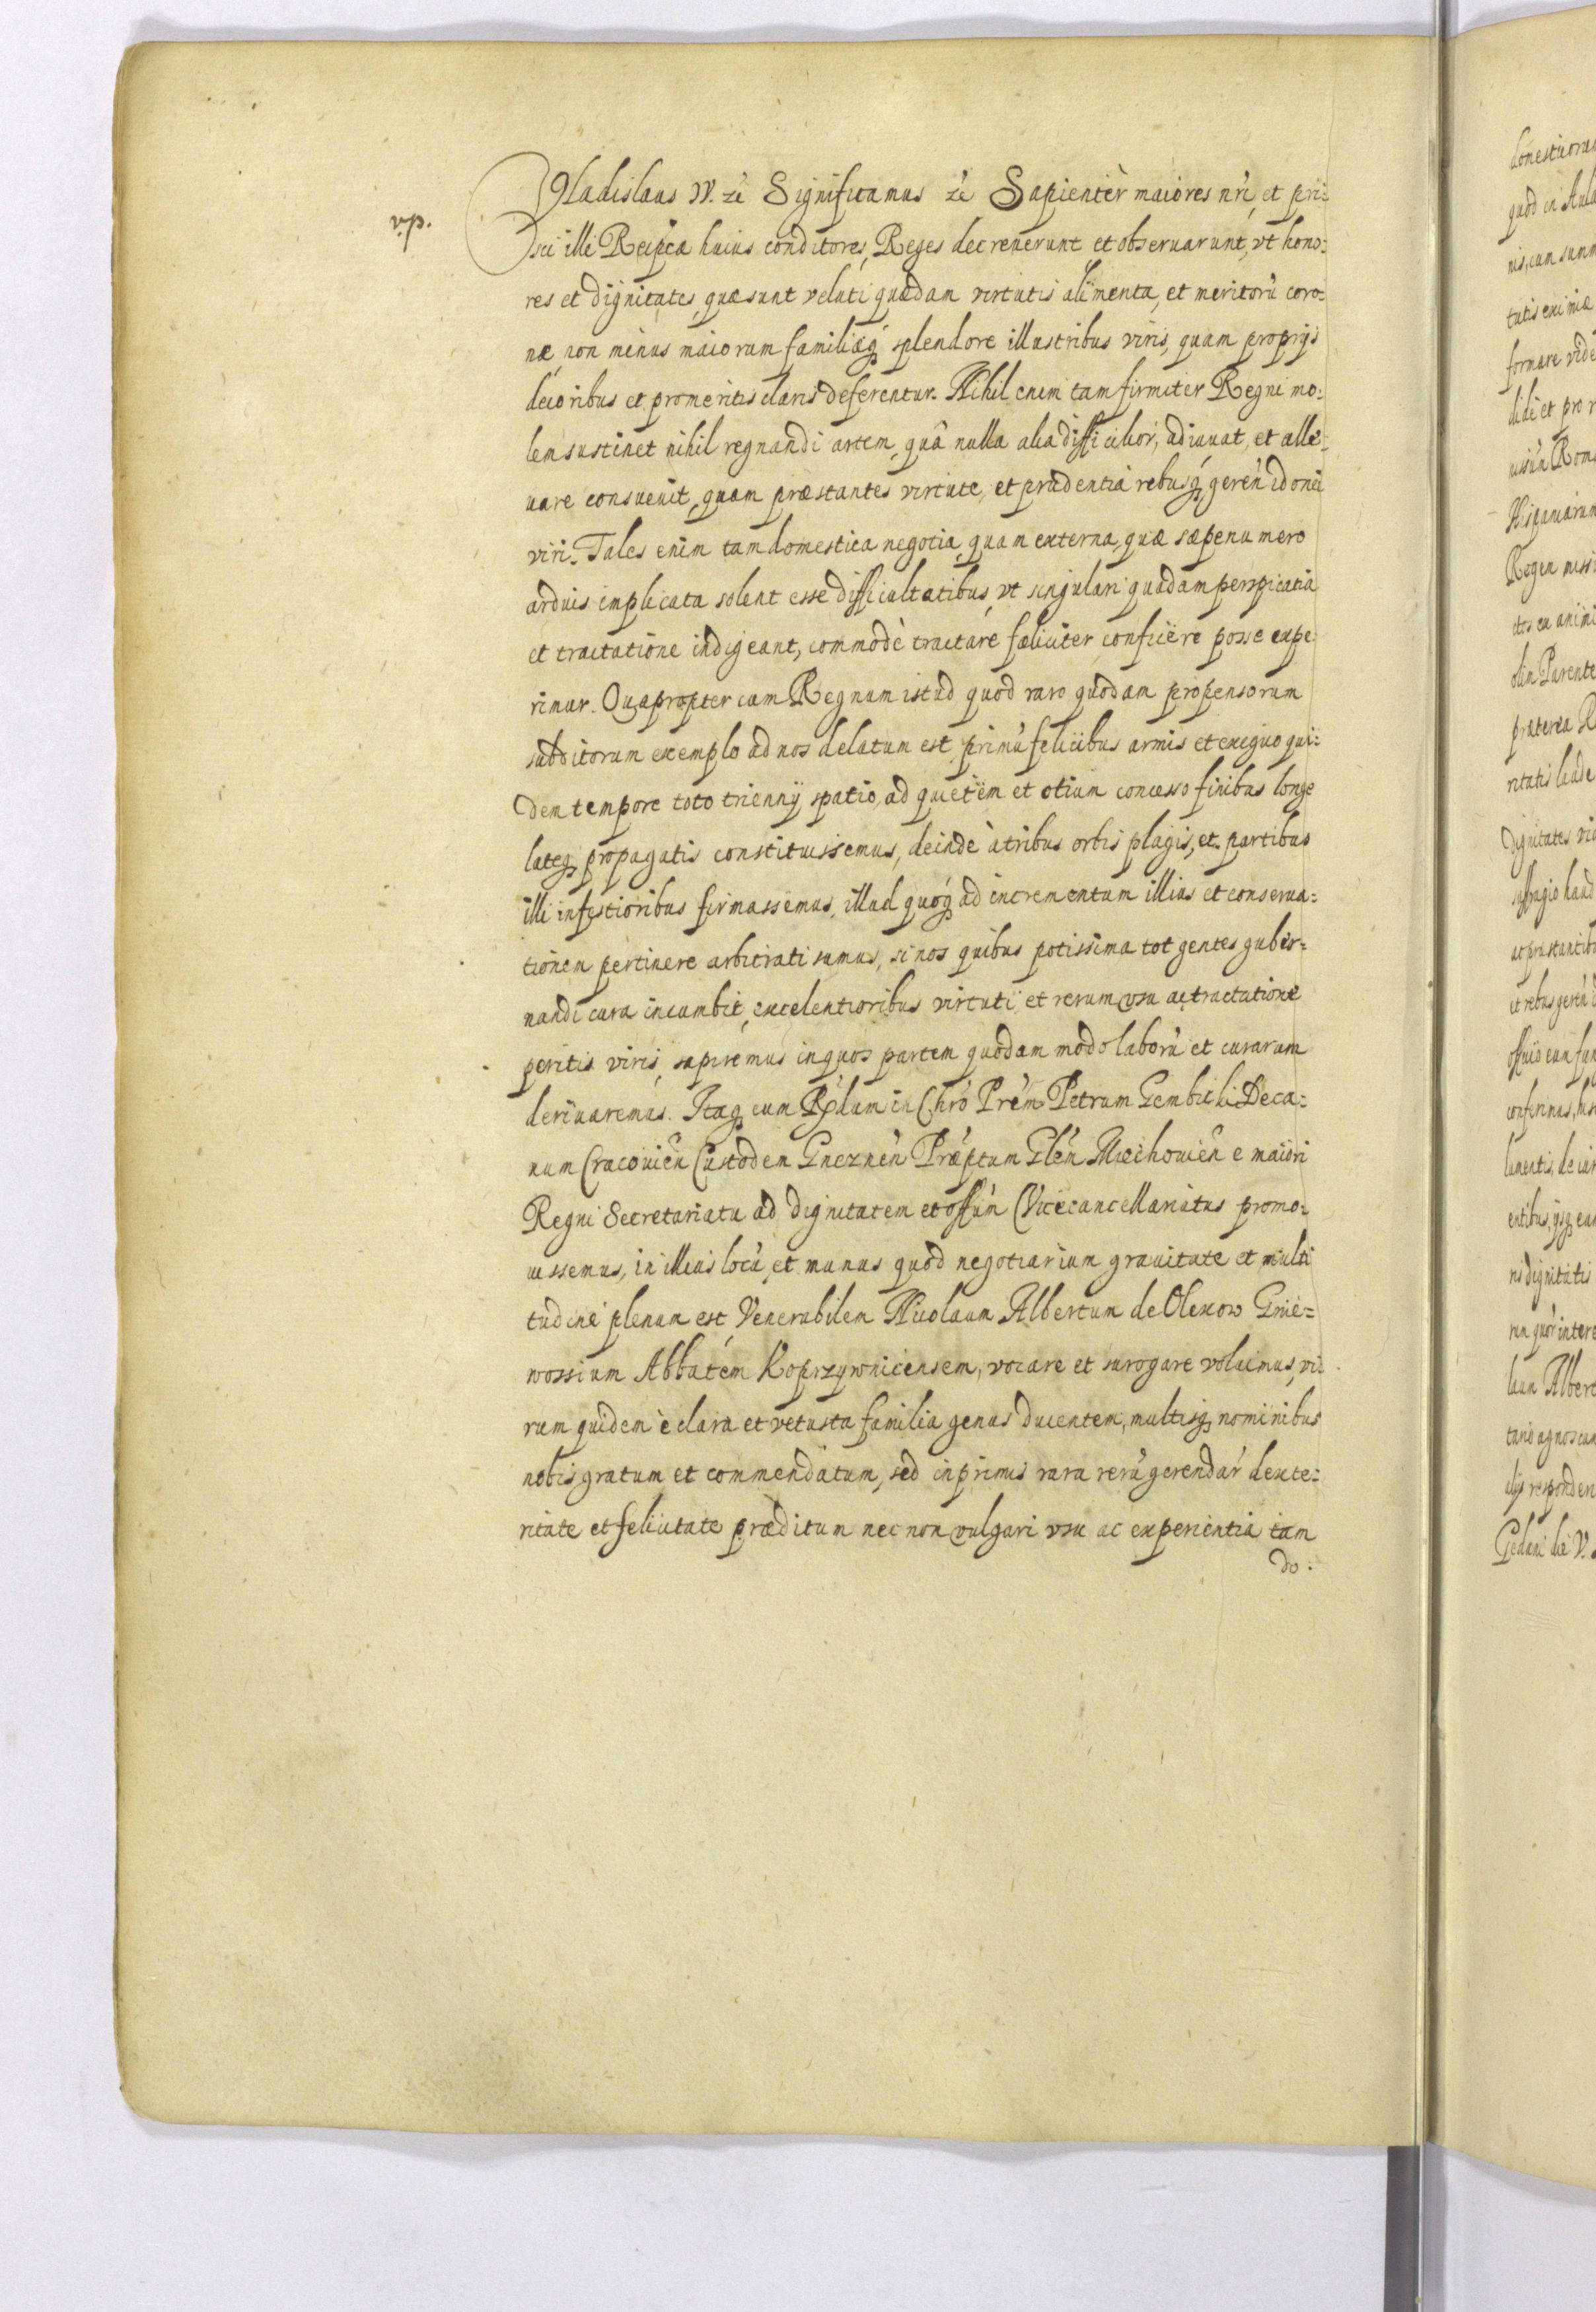 v.p.
Vladislaus IV. zc̀ Significamus zc̀ Sapientèr maiores nr̃i, et pri:
sci illi Reipcæ huius conditores, Reges decreuerunt et obseruarunt, vt hono:
res et dignitates, quæ sunt veluti quædam virtutis alimenta, et meritorũ coro:
næ, non minus maiorum familiæq; splendore illustribus viris, quam proprijs
decoribus et promeritis claris deferentur. Nihil enim tam firmiter Regni mo:
lem sustinet nihil regnandi artem, quâ nulla alia difficilior, adiuuat, et alle:
uare consueuit, quam præstantes virtute, et prudentia rebusq; geren̄ idonei
viri. Tales enim tam domestica negotia, quam externa, quæ sæpenumero
arduis implicata solent esse difficultatibus, vt singulari quadam perspicatia
et tractatione indigeant, commodè tractare fæliciter conficere posse expe:
rimur. Quapropter cum Regnum istud quod raro quodam propensorum
subditorum exemplo ad nos delatum est, primũ felicibus armis et exiguo qui:
dem tempore toto triennij spatio, ad quietem et otium concesso finibus longe
lateq; propagatis constituissemus, deinde à tribus orbis plagis, et partibus
illi infestioribus firmassemus, illud quoq; ad incrementum illius et conserua:
tionem pertinere arbitrati sumus, si nos quibus potissima tot gentes guber:
nandi cura incumbit, excelentioribus virtuti et rerum vsu ac tractatione
peritis viris, in quos partem quodam modo laborũ et curarum
deriuaremus. Itaq; cum Rṽdum in Chrõ Prẽm Petrum Gembicki Deca:
num Cracouien̄ Custodem Gneznen̄ Præptum Glen̄ Miechouien̄ e maiori
Regni Secretariatu ad dignitatem et offiũ Vicecancellariatus promo:
uissemus, in illius locũ, et munus quod negotiarium grauitate et multi
tudine plenum est, Venerabilem Nicolaum Albertum de Olexow Gnie:
wossium Abbatem Koprzywnicensem, vocare et surogare voluimus, vi:
rum quidem è clara et vetusta familia genus ducentem, multisq; nominibus
nobis gratum et commendatum, sed inprimis rara rerũ gerendar̃ dexte:
ritate et felicitate præditum nec non vulgari vsu ac experientia tam
do: